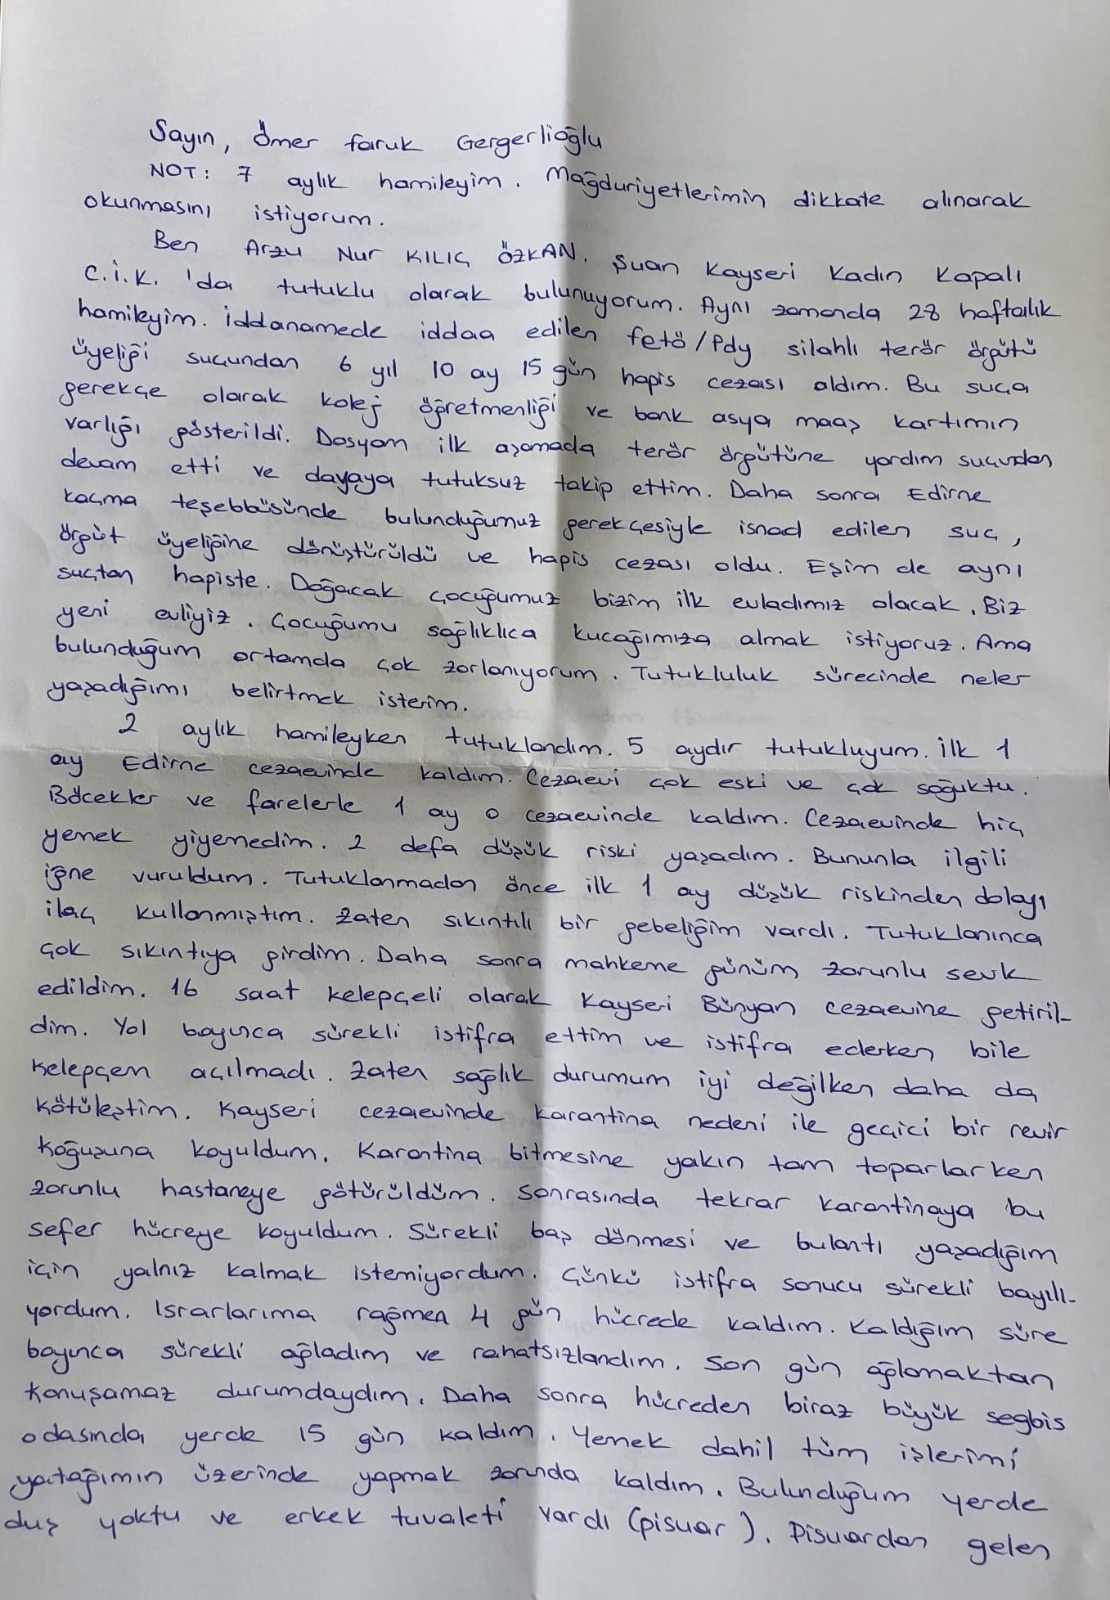 Sayın, Ömer faruk Gergerlioğlu
NOT: 7 aylık hamileyim. Mağduriyetlerimin dikkate alınarak
okunmasını istiyorum.
Ben Arzu Nur KILIÇ ÖZKAN. Şuan Kayseri Kadın Kapalı
C.İ.K. 'da tutuklu olarak bulunuyorum. Aynı zamanda 28 haftalık
hamileyim. İddanamede iddaa edilen fetö/Pdy silahlı terör örgütü
üyeliği suçundan 6 yıl 10 ay 15 gün hapis cezası aldım. Bu suça
gerekçe olarak kolej öğretmenliği ve bank asya maaş kartımın
varlığı gösterildi. Dosyam ilk aşamada terör örgütüne yardım suçundan
devam etti ve davaya tutuksuz takip ettim. Daha sonra Edirne
kaçma teşebbüsünde bulunduğumuz gerekçesiyle isnad edilen suç,
örgüt üyeliğine dönüştürüldü ve hapis cezası oldu. Eşim de aynı
suçtan hapiste. Doğacak çocuğumuz bizim ilk evladımız olacak. Biz
yeni evliyiz. Çocuğumu sağlıklıca kucağımıza almak istiyoruz. Ama
bulunduğum ortamda çok zorlanıyorum. Tutukluluk sürecinde neler
yaşadığımı belirtmek isterim.
2 aylık hamileyken tutuklandım. 5 aydır tutukluyum. İlk 1
ay Edirne cezaevinde kaldım. Cezaevi çok eski ve çok soğuktu.
Böcekler ve farelerle 1 ay o cezaevinde kaldım. Cezaevinde hiç
yemek yiyemedim. 2 defa düşük riski yaşadım. Bununla ilgili
iğne vuruldum. Tutuklanmadan önce ilk 1 ay düşük riskinden dolayı
ilaç kullanmıştım. Zaten sıkıntılı bir gebeliğim vardı. Tutuklanınca
çok sıkıntıya girdim. Daha sonra mahkeme günüm zorunlu sevk
edildim. 16 saat kelepçeli olarak Kayseri Bünyan cezaevine getiril-
dim. Yol boyunca sürekli istifra ettim ve istifra ederken bile
kelepçem açılmadı. Zaten sağlık durumum iyi değilken daha da
kötüleştim. Kayseri cezaevinde karantina nedeni ile geçici bir revir
koğuşuna koyuldum. Karantina bitmesine yakın tam toparlarken
zorunlu hastaneye götürüldüm. Sonrasında tekrar karantinaya bu
sefer hücreye koyuldum. Sürekli baş dönmesi ve bulantı yaşadığım
için yalnız kalmak istemiyordum. Çünkü istifra sonucu sürekli bayılı-
yordum. Israrlarıma rağmen 4 gün hücrede kaldım. Kaldığım süre
boyunca sürekli ağladım ve rahatsızlandım. Son gün ağlamaktan
konuşamaz durumdaydım. Daha sonra hücreden biraz büyük segbis
odasında yerde 15 gün kaldım. Yemek dahil tüm işlerimi
yatağımın üzerinde yapmak zorunda kaldım. Bulunduğum yerde
duş yoktu ve erkek tuvaleti vardı (pisuar). Pisuardan gelen